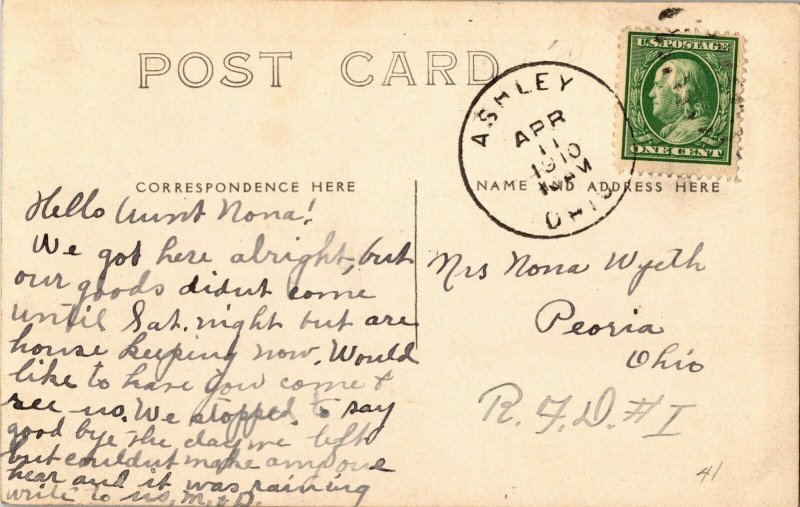 POST CARD
ASHLEY
APR
11
1910
OHIO
U.S. POSTAGE
ONE CENT
CORRESPONDENCE HERE
NAME AND ADDRESS HERE
Hello Aunt Nona!
We got here alright, but
our goods didnt come
until Sat. night but are
house keeping now. Would
like to have you come &
see us. We stopped to say
good bye the day we left
but couldnt make anyone
hear and it was raining
write to us. M. & D.
Mrs Nona Wyeth
Peoria
Ohio
R.F.D. #1
41